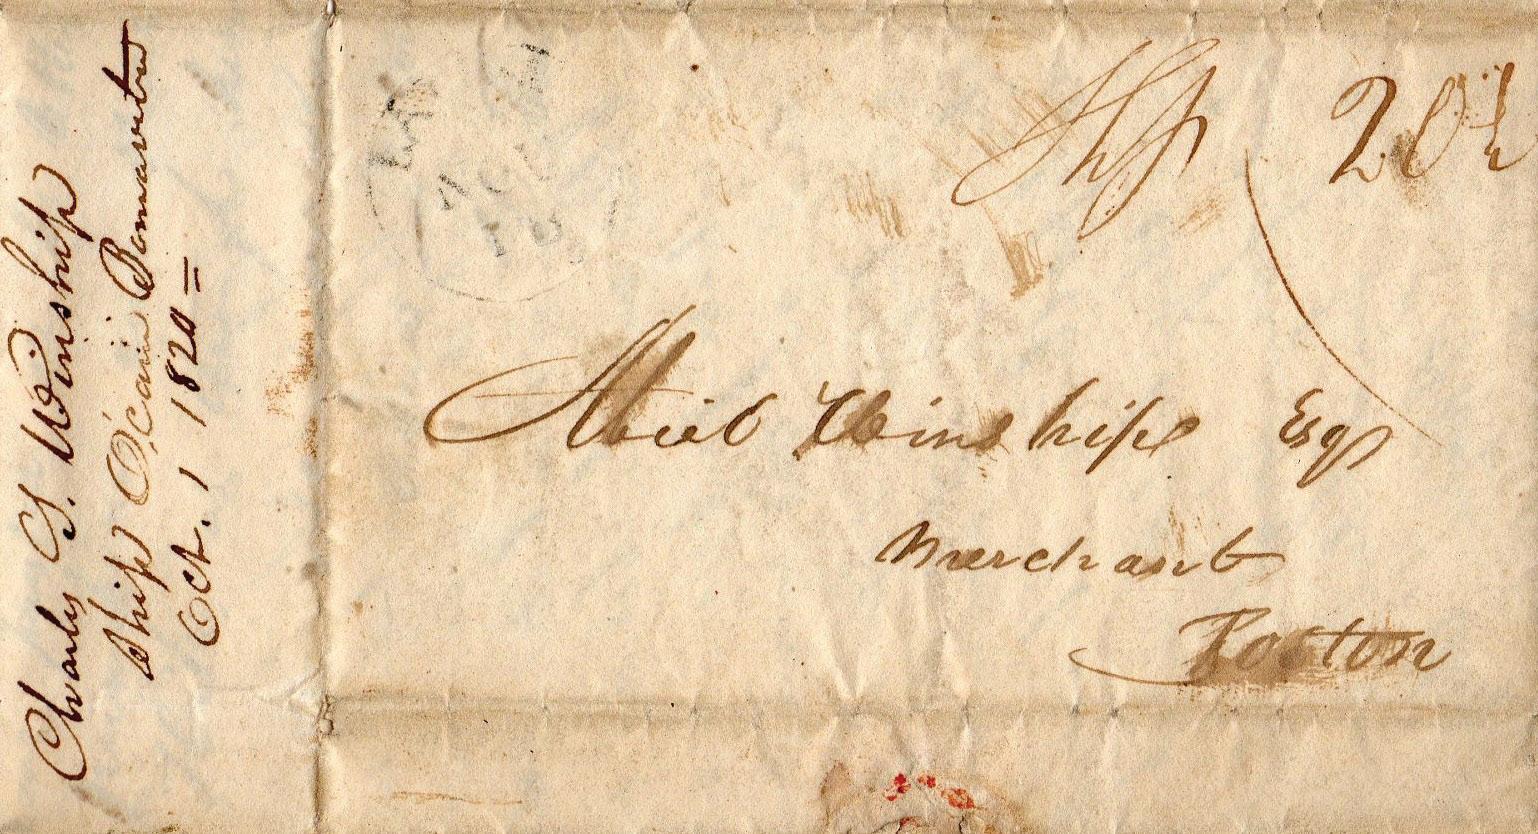 Charles G. Winship
Ship O'Cain Bonavista
Oct. 1 1820
NOV
18
Ship 20½
Abiel Winship Esqr
Merchant
Boston